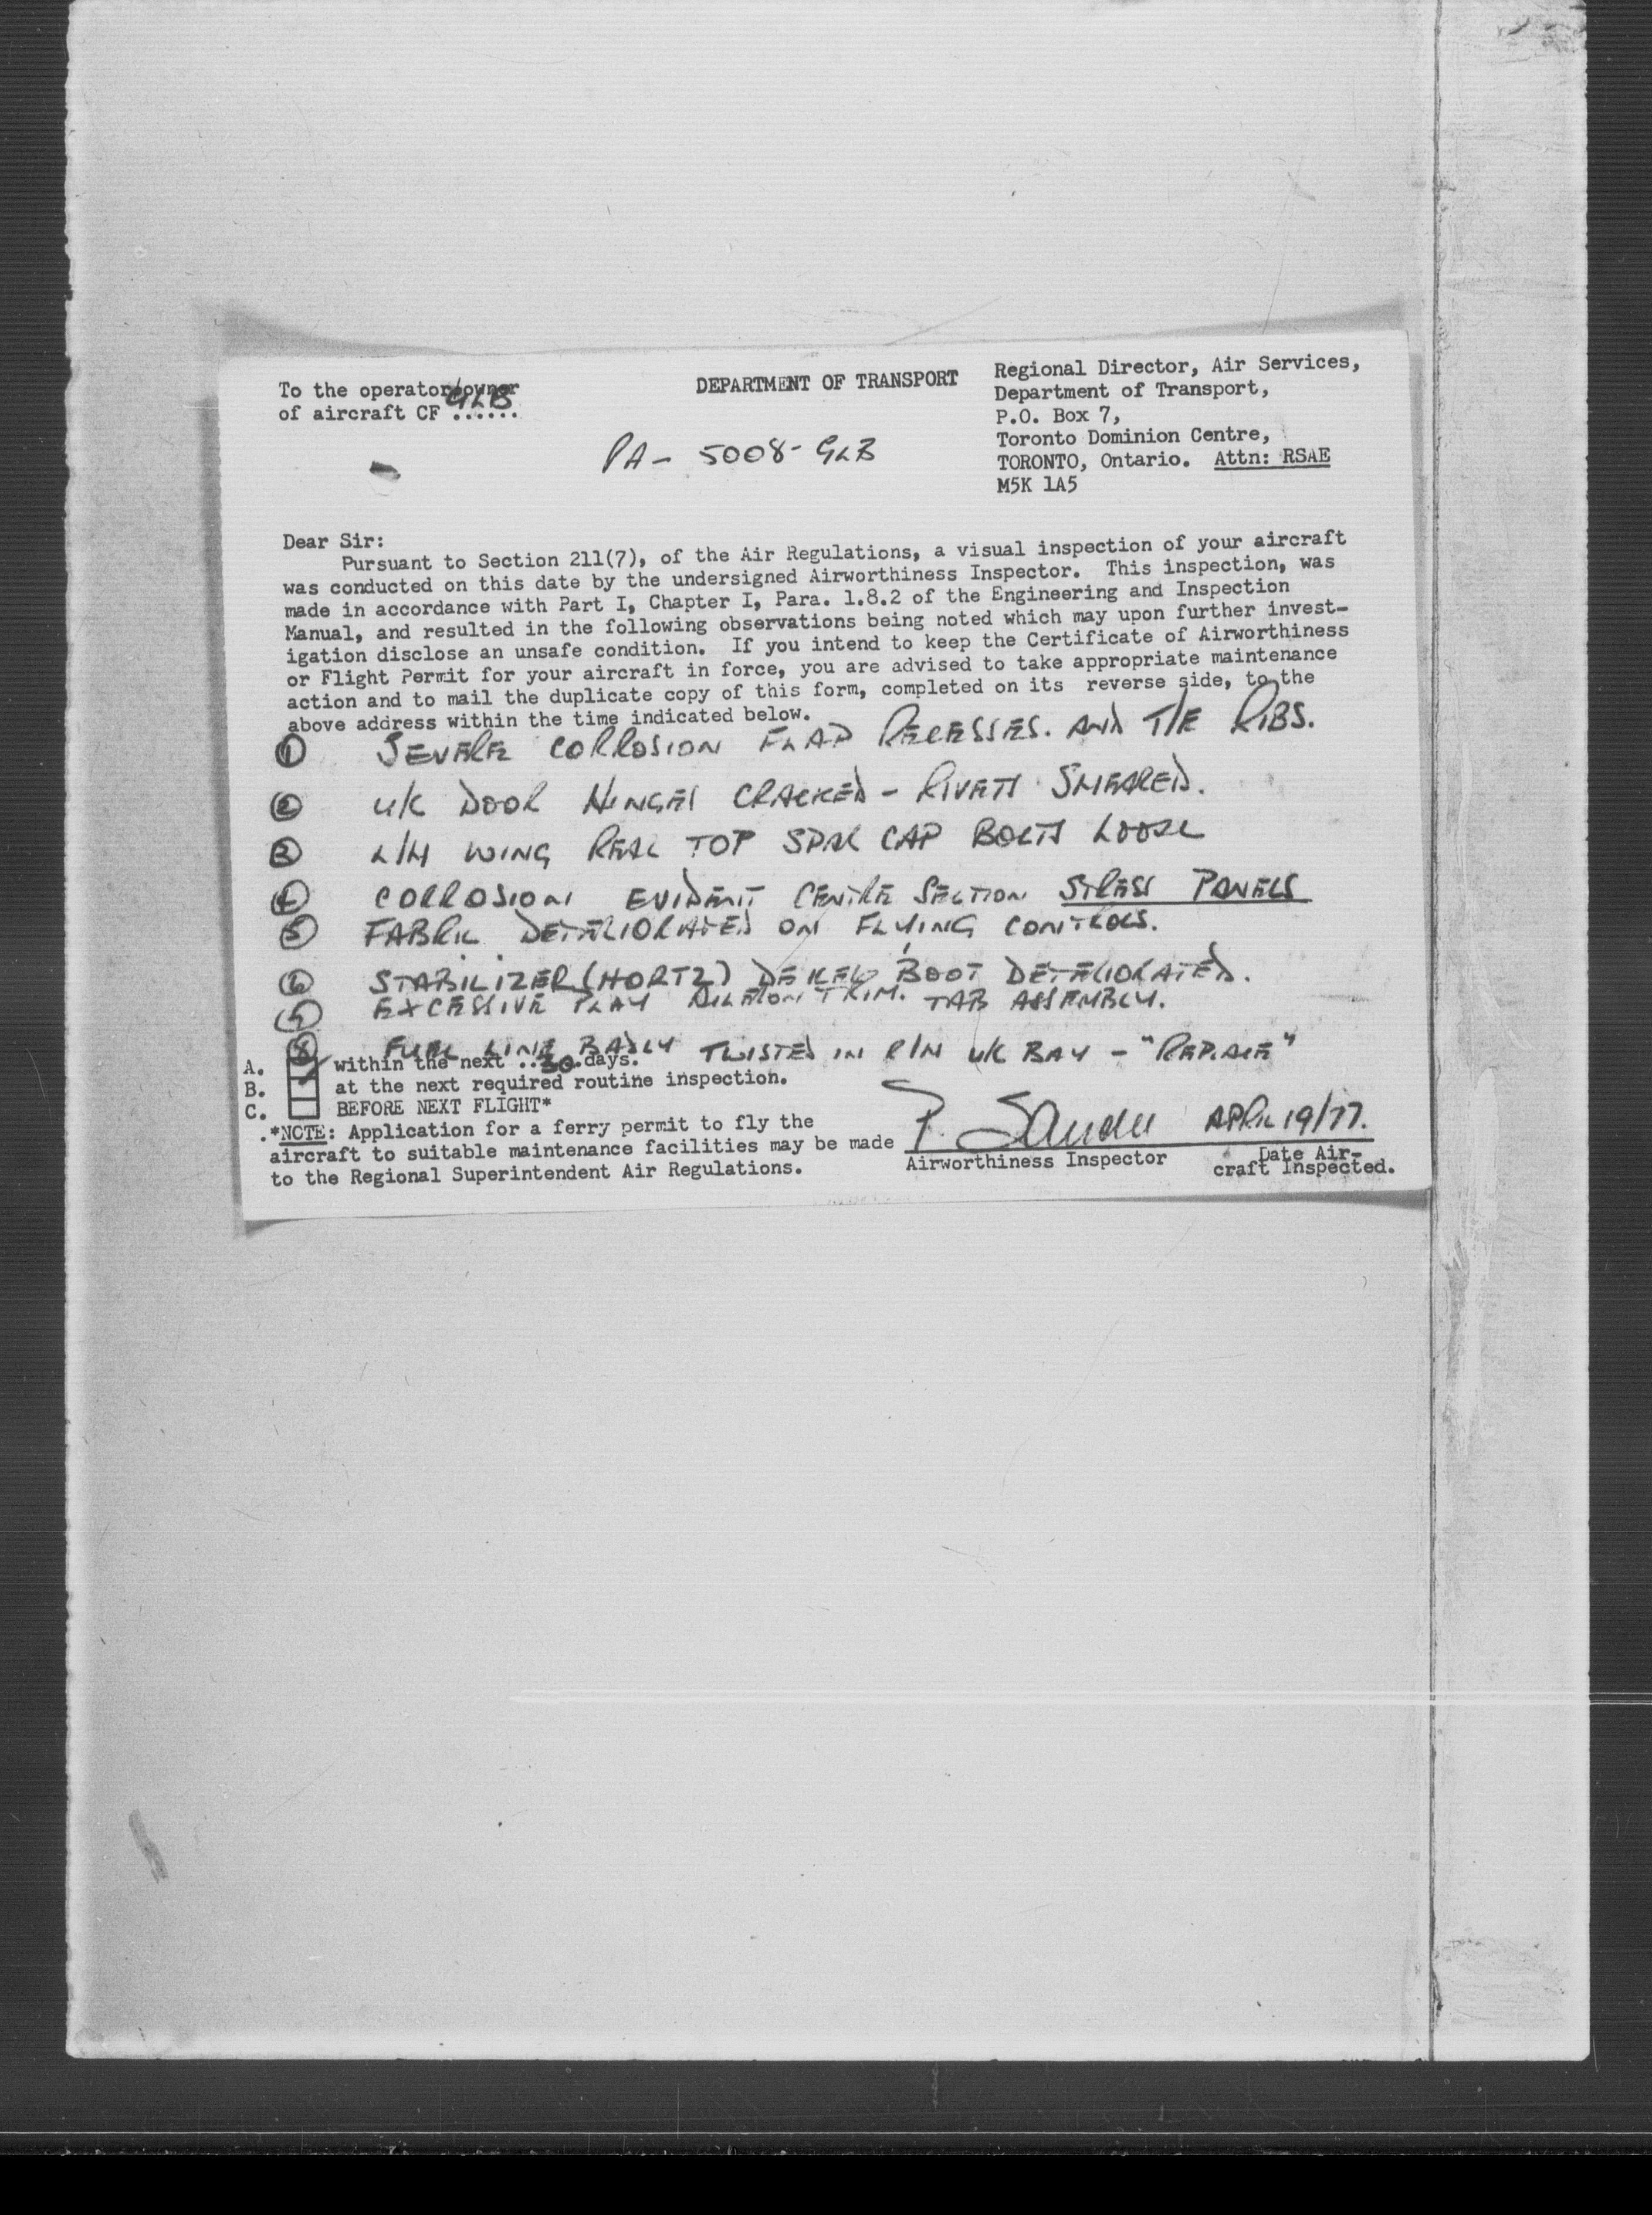 To the operator/owner
of aircraft CF GLB ......
DEPARTMENT OF TRANSPORT
Regional Director, Air Services,
Department of Transport,
P.O. Box 7,
Toronto Dominion Centre,
TORONTO, Ontario. Attn: RSAE
M5K 1A5
PA - 5008 - GLB
Dear Sir:
Pursuant to Section 211(7), of the Air Regulations, a visual inspection of your aircraft
was conducted on this date by the undersigned Airworthiness Inspector. This inspection, was
made in accordance with Part I, Chapter I, Para. 1.8.2 of the Engineering and Inspection
Manual, and resulted in the following observations being noted which may upon further invest-
igation disclose an unsafe condition. If you intend to keep the Certificate of Airworthiness
or Flight Permit for your aircraft in force, you are advised to take appropriate maintenance
action and to mail the duplicate copy of this form, completed on its reverse side, to the
above address within the time indicated below.
① SEVERE CORROSION FLAP RECESSES. AND T/E RIBS.
② U/C DOOR HINGES CRACKED - RIVETS SHEARED.
③ L/H WING REAR TOP SPAR CAP BOLTS LOOSE
④ CORROSION EVIDENT CENTRE SECTION STRESS PANELS
⑤ FABRIC DETERIORATED ON FLYING CONTROLS.
⑥ STABILIZER (HORTZ) DEICER BOOT DETERIORATED.
⑦ EXCESSIVE PLAY AILERON TRIM. TAB ASSEMBLY.
⑧ FUEL LINE BADLY TWISTED IN R/H U/C BAY - "REPLACE"
A. within the next ..30.days.
B. at the next required routine inspection.
C. BEFORE NEXT FLIGHT*
.*NOTE: Application for a ferry permit to fly the
aircraft to suitable maintenance facilities may be made
to the Regional Superintendent Air Regulations.
P. APRIL 19/77.
Airworthiness Inspector
Date Air-
craft Inspected.